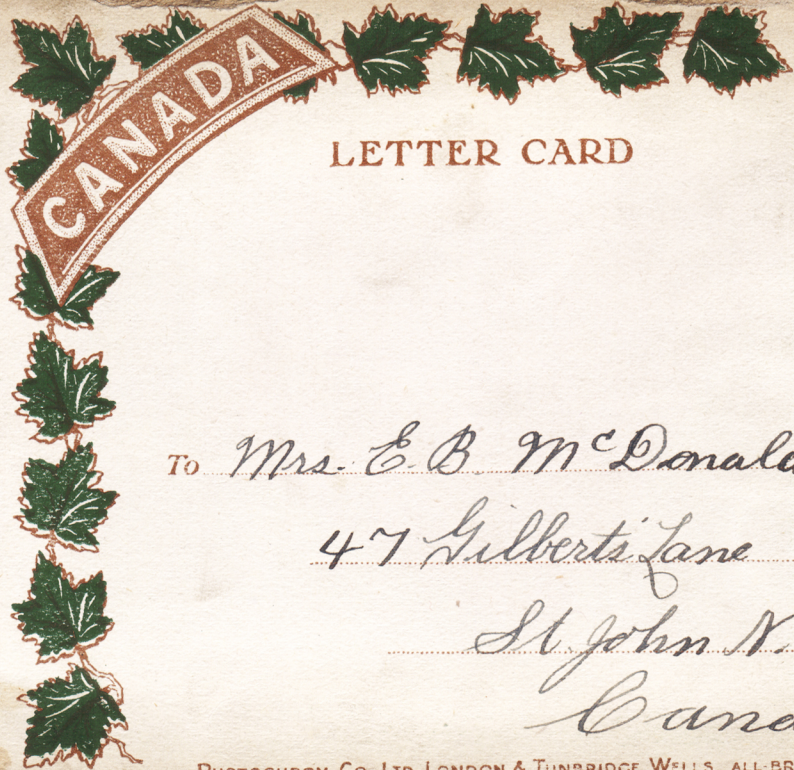 CANADA
LETTER CARD
To Mrs. E. B. McDonald
47 Gilberts' Lane
St. John N.
Cana
PHOTOCHROM CO. LTD. LONDON & TUNBRIDGE WELLS. ALL-BR